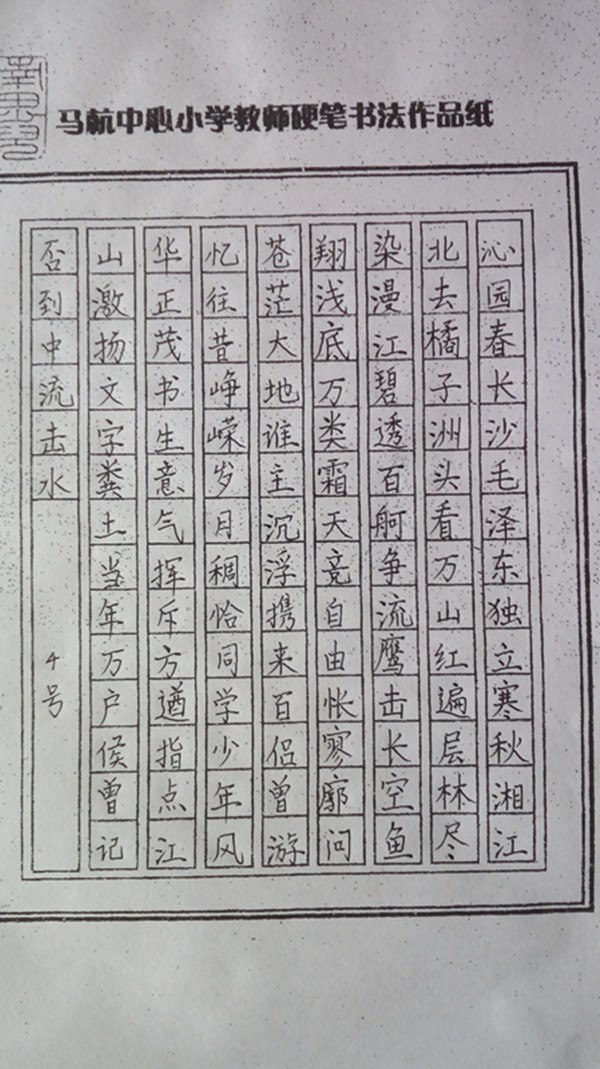 马杭中心小学教师硬笔书法作品纸
沁园春长沙毛泽东独立寒秋湘江
北去橘子洲头看万山红遍层林尽
染漫江碧透百舸争流鹰击长空鱼
翔浅底万类霜天竞自由怅寥廓问
苍茫大地谁主沉浮携来百侣曾游
忆往昔峥嵘岁月稠恰同学少年风
华正茂书生意气挥斥方遒指点江
山激扬文字粪土当年万户侯曾记
否到中流击水
4号